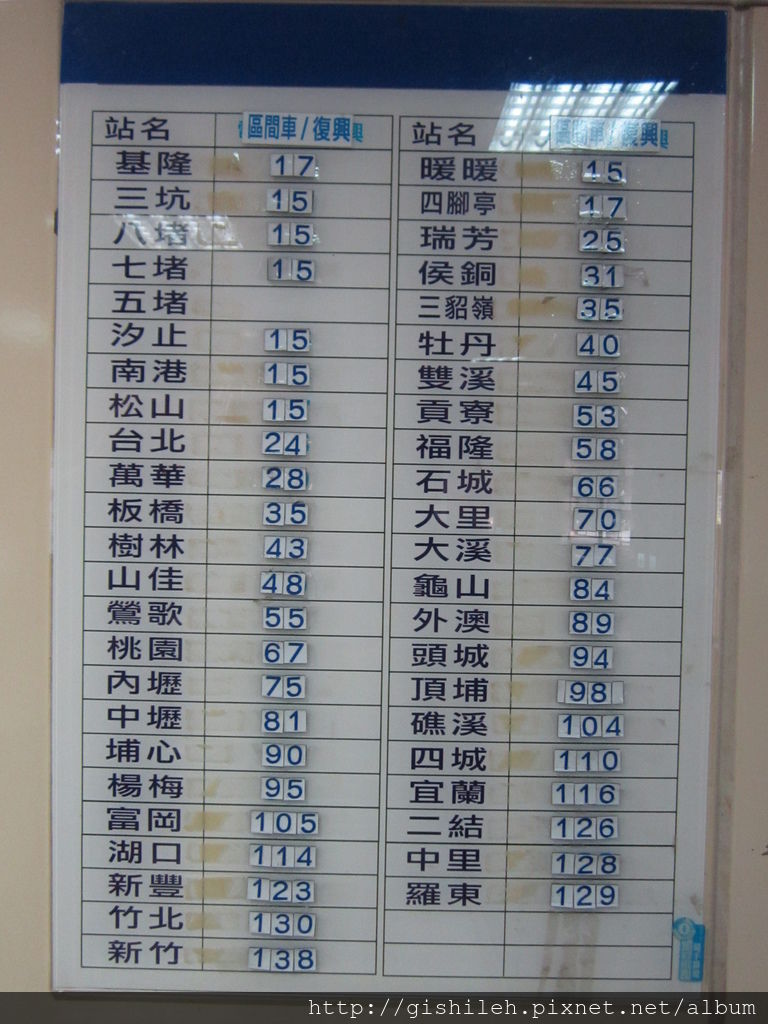 站名 區間車/復興
基隆 17
三坑 15
八堵 15
七堵 15
五堵
汐止 15
南港 15
松山 15
台北 24
萬華 28
板橋 35
樹林 43
山佳 48
鶯歌 55
桃園 67
內壢 75
中壢 81
埔心 90
楊梅 95
富岡 105
湖口 114
新豐 123
竹北 130
新竹 138
站名 區間車/復興
暖暖 15
四腳亭 17
瑞芳 25
侯銅 31
三貂嶺 35
牡丹 40
雙溪 45
貢寮 53
福隆 58
石城 66
大里 70
大溪 77
龜山 84
外澳 89
頭城 94
頂埔 98
礁溪 104
四城 110
宜蘭 116
二結 126
中里 128
羅東 129
http://gishileh.pixnet.net/album